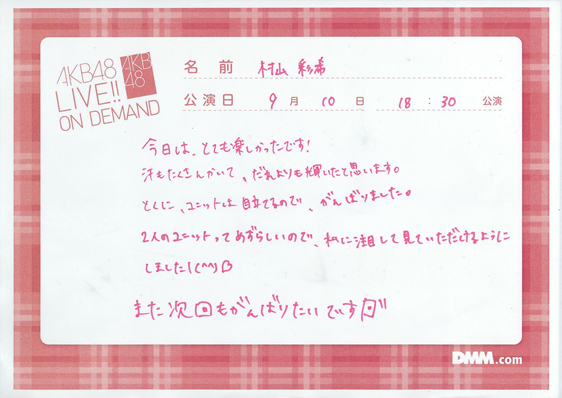 AKB48
LIVE!!
ON DEMAND
AKB
48
名 前 村山 彩希
公演日 9 月 10 日 18 : 30 公演
今日は、とても楽しかったです!
汗もたくさんかいて、だれよりも輝いたと思います。
とくに、ユニットは目立てるので、がんばりました。
2人のユニットってめずらしいので、私に注目して見ていただけるように
しました!(^^)
また次回もがんばりたいです
DMM.com